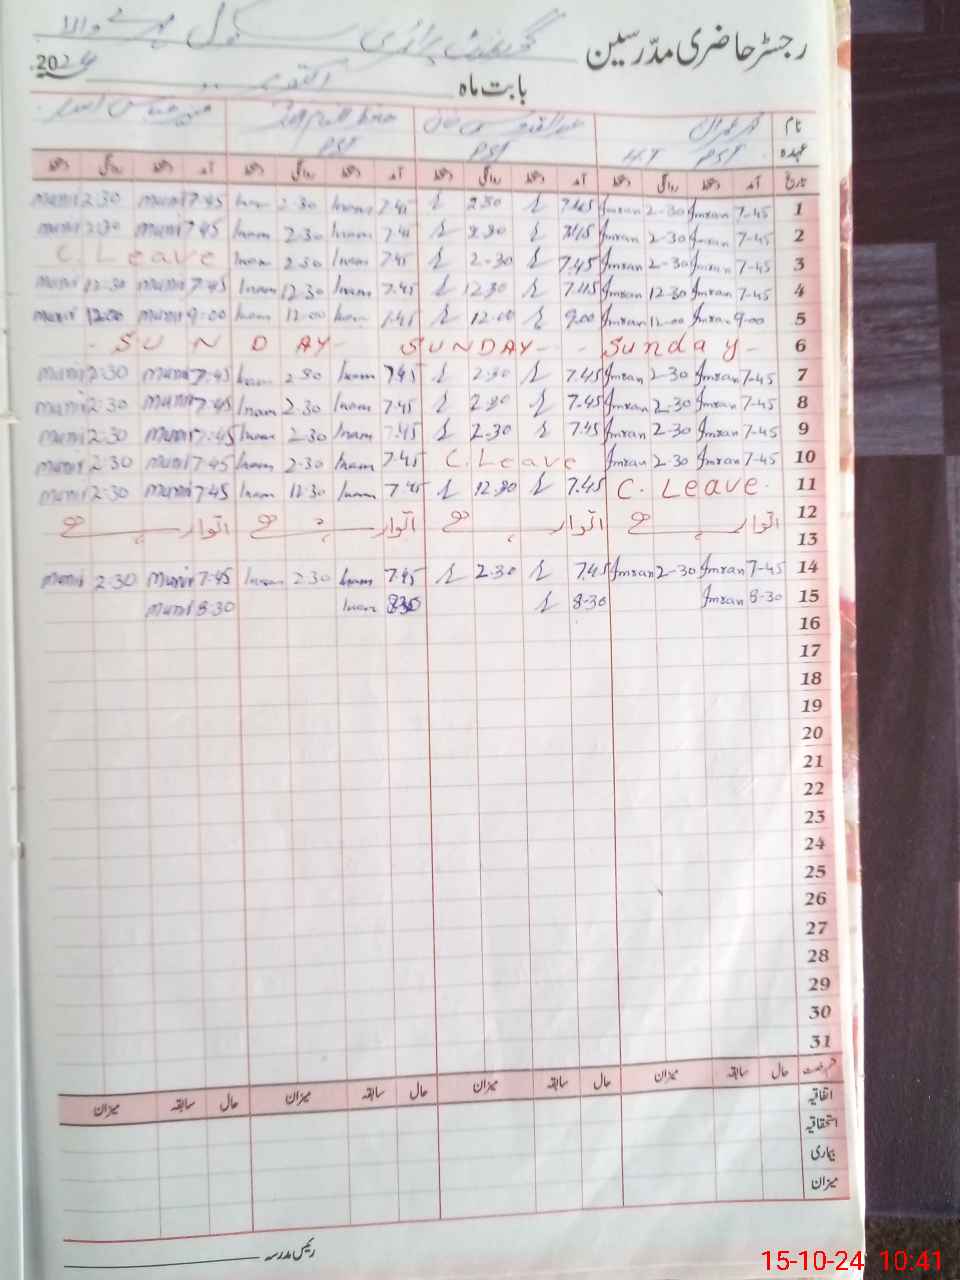 رجسٹر حاضری مدرسین گورنمنٹ پرائمری سکول
بابت ماہ اکتوبر 2024
نام
عہدہ PST H.T PST PST
تاریخ آمد دستخط روانگی دستخط آمد دستخط روانگی دستخط آمد دستخط روانگی دستخط آمد دستخط روانگی دستخط
1 7-45 Imran 2-30 Imran 7.45 2.30 7.45 Inam 2.30 Inam 7.45 Munir 2.30 Munir
2 7-45 Imran 2-30 Imran 7.45 2.30 7.45 Inam 2.30 Inam 7.45 Munir 2.30 Munir
3 7-45 Imran 2-30 Imran 7.45 2-30 7.45 Inam 2.30 Inam C. Leave
4 7-45 Imran 12.30 Imran 7.45 12.30 7.45 Inam 12.30 Inam 7.45 Munir 12.30 Munir
5 9-00 Imran 12-00 Imran 9.00 12.00 7.45 Inam 12.00 Inam 9.00 Munir 12.00 Munir
6 Sunday SUNDAY SUNDAY
7 7-45 Imran 2-30 Imran 7.45 2.30 7.45 Inam 2.30 Inam 7.45 Munir 2.30 Munir
8 7-45 Imran 2.30 Imran 7.45 2.30 7.45 Inam 2.30 Inam 7.45 Munir 2.30 Munir
9 7-45 Imran 2-30 Imran 7.45 2.30 7.45 Inam 2.30 Inam 7.45 Munir 2.30 Munir
10 7-45 Imran 2.30 Imran C. Leave 7.45 Inam 2.30 Inam 7.45 Munir 2:30 Munir
11 C. Leave. 7.45 12.30 7.45 Inam 12.30 Inam 7.45 Munir 2.30 Munir
12
13 اتوار ہے اتوار ہے اتوار ہے اتوار ہے
14 7-45 Imran 2-30 Imran 7.45 2.30 7.45 Inam 2.30 Inam 7.45 Munir 2.30 Munir
15 8-30 Imran 8-30 8.30 Inam 8.30 Munir
16
17
18
19
20
21
22
23
24
25
26
27
28
29
30
31
حال سابقہ میزان حال سابقہ میزان حال سابقہ میزان حال سابقہ میزان
اتفاقیہ
استحقاقیہ
بیماری
میزان
رئیس مدرسہ
15-10-24 10:41